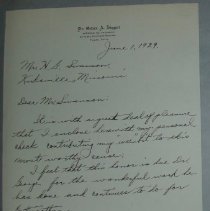 June 1, 1929.
Kirksville, Missouri
Dear Mr. Swanson:
It is with a great deal of pleasure
that I enclose herewith my personal
check contributing my "weight" to this
most worthy cause.
I feel that this honor is due Dr.
for the wonderful work he
has done and continues to do for